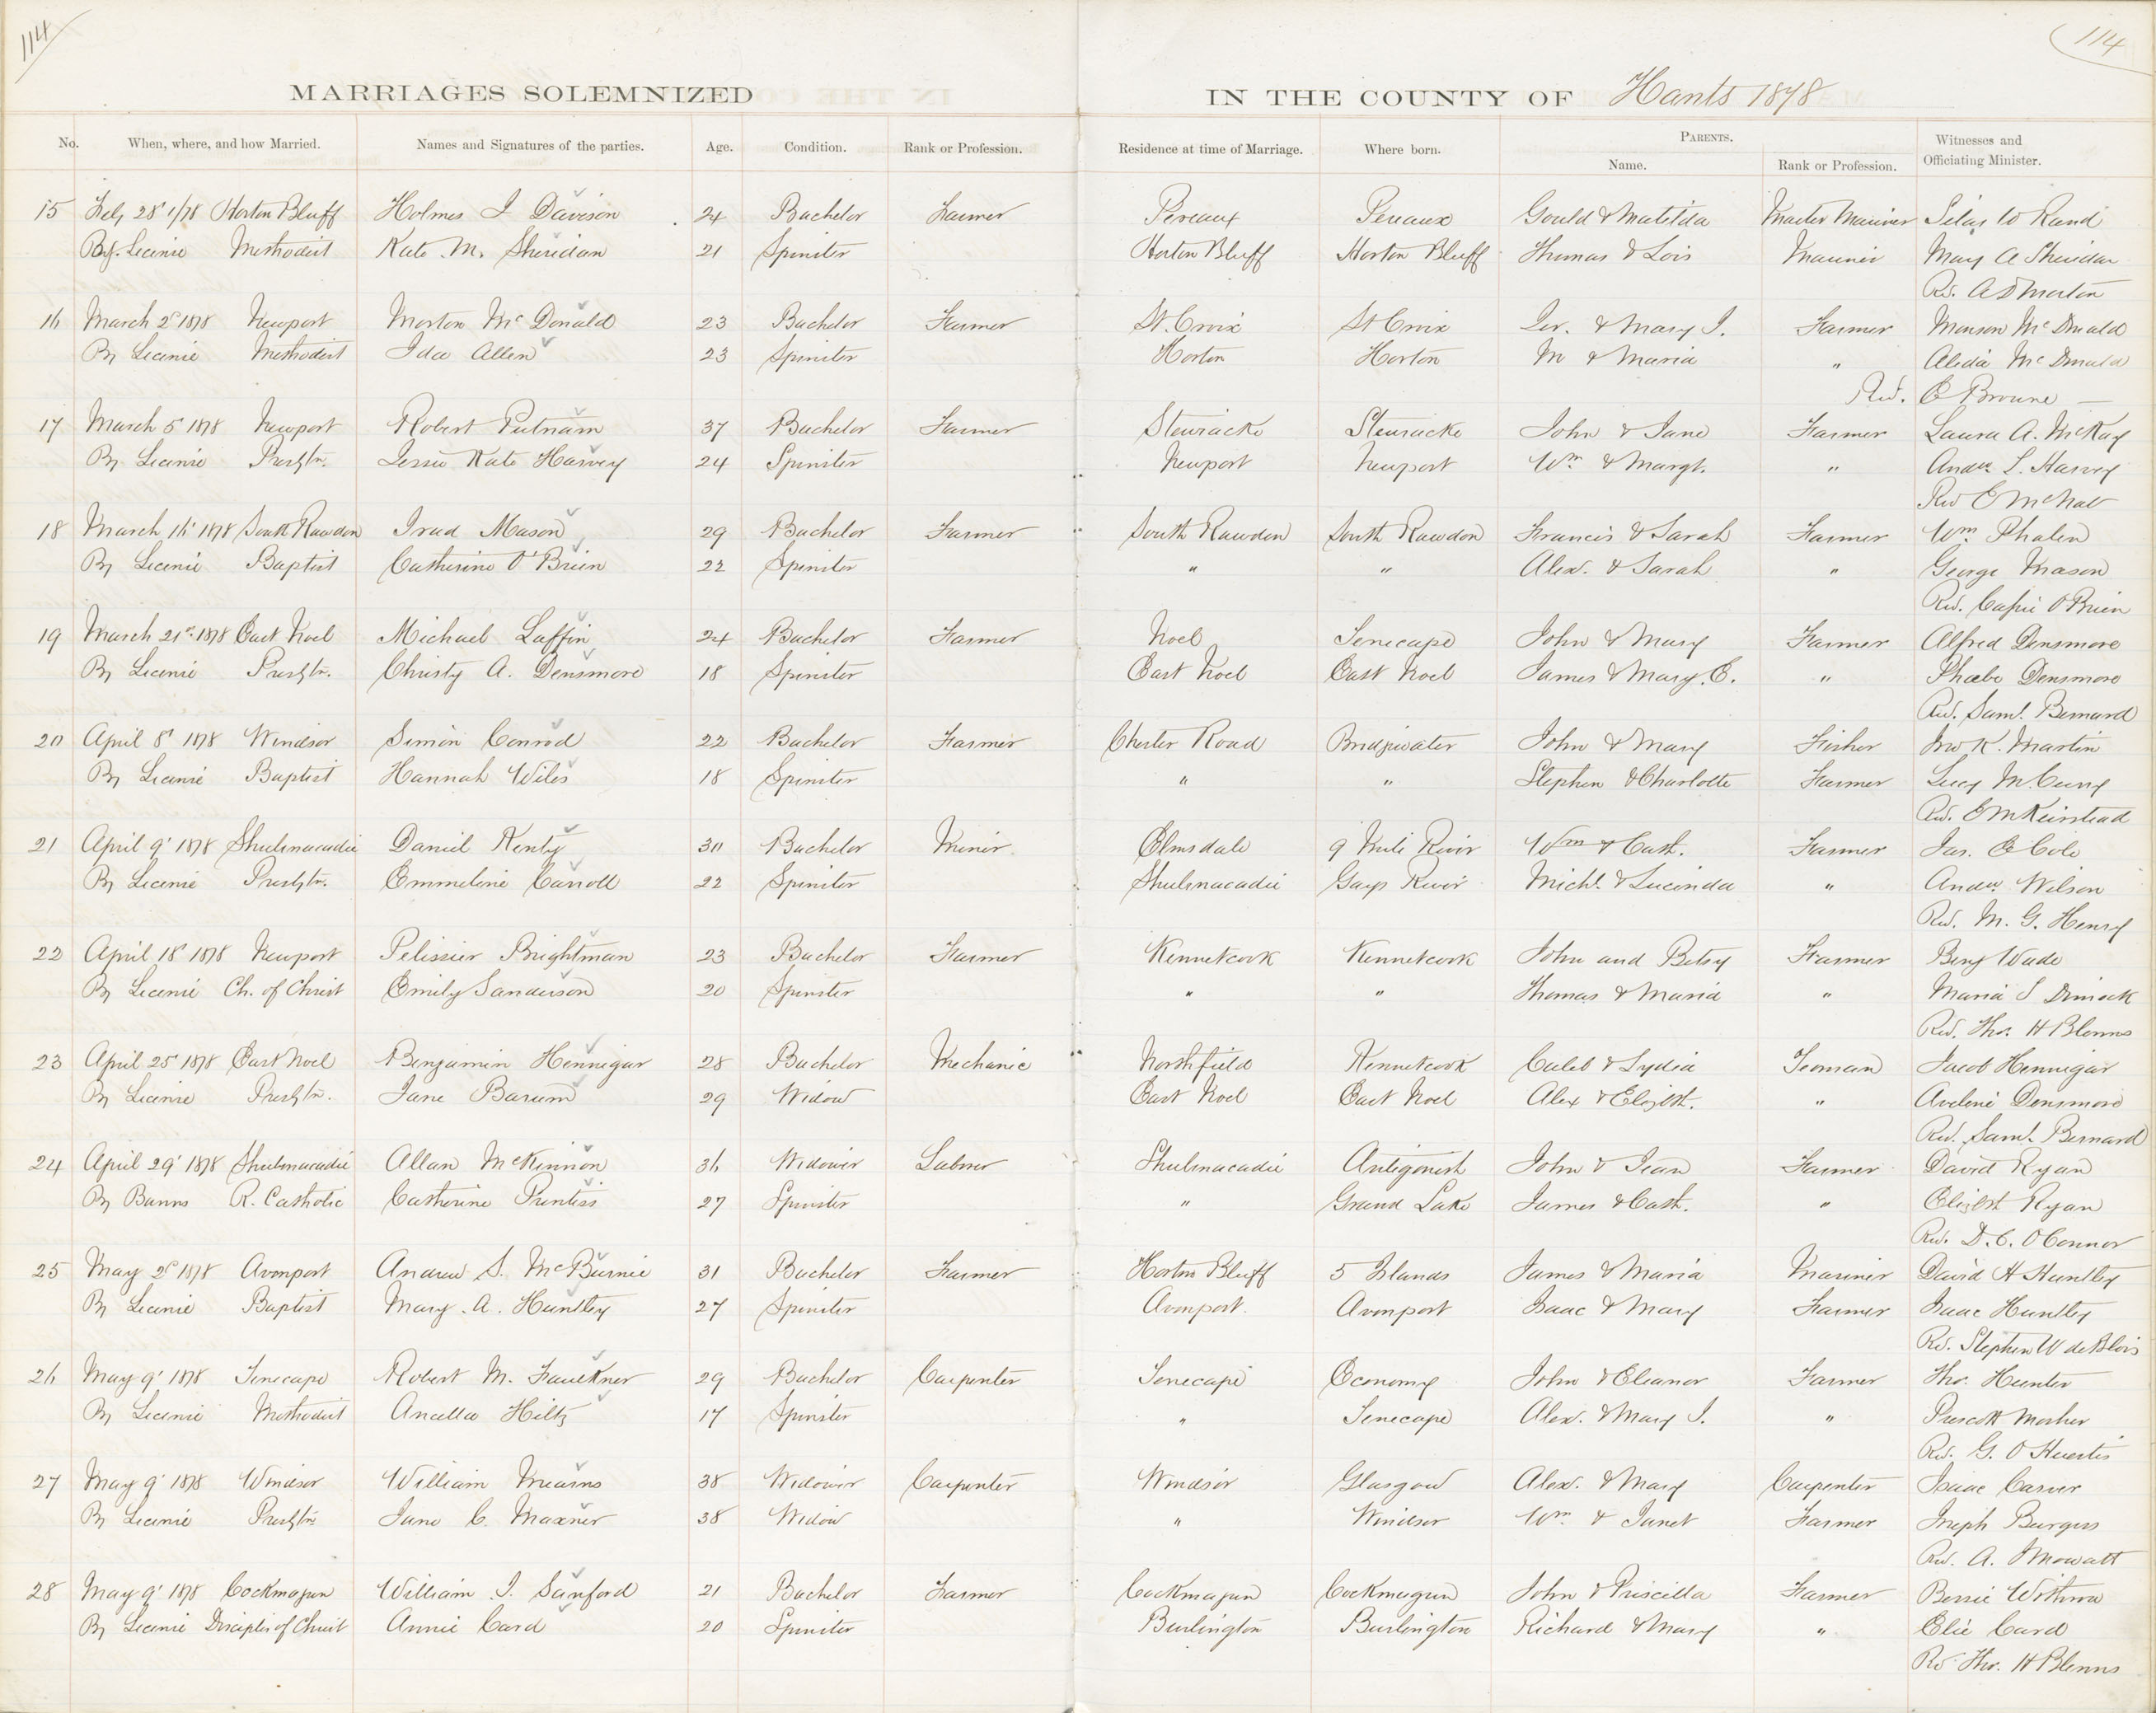 114
114
MARRIAGES SOLEMNIZED IN THE COUNTY OF Hants 1878
No. When, where, and how Married. Names and Signatures of the parties. Age. Condition. Rank or Profession. Residence at time of Marriage. Where born. PARENTS. Witnesses and Officiating Minister.
Name. Rank or Profession.
15 Feby 28 1878 Horton Bluff Holmes I Davison 24 Bachelor Farmer Pereaux Pereaux Gould & Matilda Master Mariner Silas W Rand
By Licence Methodist Kate M. Sheridan 21 Spinster Horton Bluff Horton Bluff Thomas & Lois Mariner Mary A Sheridan
Rev. A D Morton
16 March 2d 1878 Newport Morton McDonald 23 Bachelor Farmer St. Croix St Croix & Mary J. Farmer Monson McDonald
By Licence Methodist Ida Allen 23 Spinster Horton Horton M & Maria " Alida McDonald
Rev. E Browne —
17 March 5 1878 Newport Robert Putnam 37 Bachelor Farmer Stewiacke Stewiacke John & Jane Farmer Laura A. McKay
By Licence Presbtn. Jessie Kate Harvey 24 Spinster Newport Newport Wm & Margt. " Andw L. Harvey
Rev E McNab
18 March 16 1878 South Rawdon Irad Mason 29 Bachelor Farmer South Rawdon South Rawdon Francis & Sarah Farmer Wm Phalen
By Licence Baptist Catherine O'Brien 22 Spinster " " Alex. & Sarah " George Mason
Rev. O'Brien
19 March 21st 1878 East Noel Michael Laffin 24 Bachelor Farmer Noel Tenecape John & Mary Farmer Alfred Densmore
By Licence Presbtn. Christy A. Densmore 18 Spinster East Noel East Noel James & Mary E. " Phœbe Densmore
Rev. Saml. Bernard
20 April 8 1878 Windsor Simon Conrod 22 Bachelor Farmer Chester Road Bridgewater John & Mary Fisher Jno K. Martin
By Licence Baptist Hannah Wiles 18 Spinster " " Stephen & Charlotte Farmer Lucy M. Curry
Rev. E M Keirstead
21 April 9 1878 Shubenacadie Daniel Kenty 30 Bachelor Miner Elmsdale 9 Mile River Wm & Cath. Farmer Jas. E Cole
By Licence Presbtn. Emmeline Carroll 22 Spinster Shubenacadie Gays River Michl. & Lucinda " Andw Wilson
Rev. M. G. Henry
22 April 18 1878 Newport Pelissier Brightman 23 Bachelor Farmer Kennetcook Kennetcook John and Betsy Farmer Benj Wade
By Licence Ch. of Christ Emily Sanderson 20 Spinster " " Thomas & Maria " Maria S Dimock
Rev. Thos. H Blenus
23 April 25 1878 East Noel Benjamin Hennigar 28 Bachelor Mechanic Northfield Kennetcook Caleb & Lydia Yeoman Jacob Hennigar
By Licence Presbtn. Jane Barum 29 Widow East Noel East Noel Alex & Elizbth. " Aveline Densmore
Rev. Saml. Bernard
24 April 29 1878 Shubenacadie Allan McKinnon 36 Widower Labour Shubenacadie Antigonish John & Jean Farmer David Ryan
By Banns R. Catholic Catherine Prentiss 27 Spinster " Grand Lake James & Cath. " Elizbth Ryan
Rev. D. C. O'Connor
25 May 2d 1878 Avonport Andrew S. McBurnie 31 Bachelor Farmer Horton Bluff 5 Islands James & Maria Mariner David H Huntley
By Licence Baptist Mary A. Huntley 27 Spinster Avonport. Avonport Isaac & Mary Farmer Isaac Huntley
Rev. Stephen W deBlois
26 May 9 1878 Tenecape Robert M. Faulkner 29 Bachelor Carpenter Tenecape Economy John & Eleanor Farmer Thos. Hunter
By Licence Methodist Ancella Hiltz 17 Spinster " Tenecape Alex. & Mary J. " Prescott Mosher
Rev. G. O Huestis
27 May 9 1878 Windsor William Mearns 38 Widower Carpenter Windsor Glasgow Alex. & Mary Carpenter Isaac Carver
By Licence Presbtn Jane C. Maxner 38 Widow " Windsor Wm & Janet Farmer Joseph Burgess
Rev. A. J Mowatt
28 May 9 1878 Cockmagun William J. Sanford 21 Bachelor Farmer Cockmagun Cockmagun John & Priscilla Farmer Bessie Withrow
By Licence Disciples of Christ Annie Card 20 Spinster Burlington Burlington Richard & Mary " Elie Card
Rev Thos. H Blenus